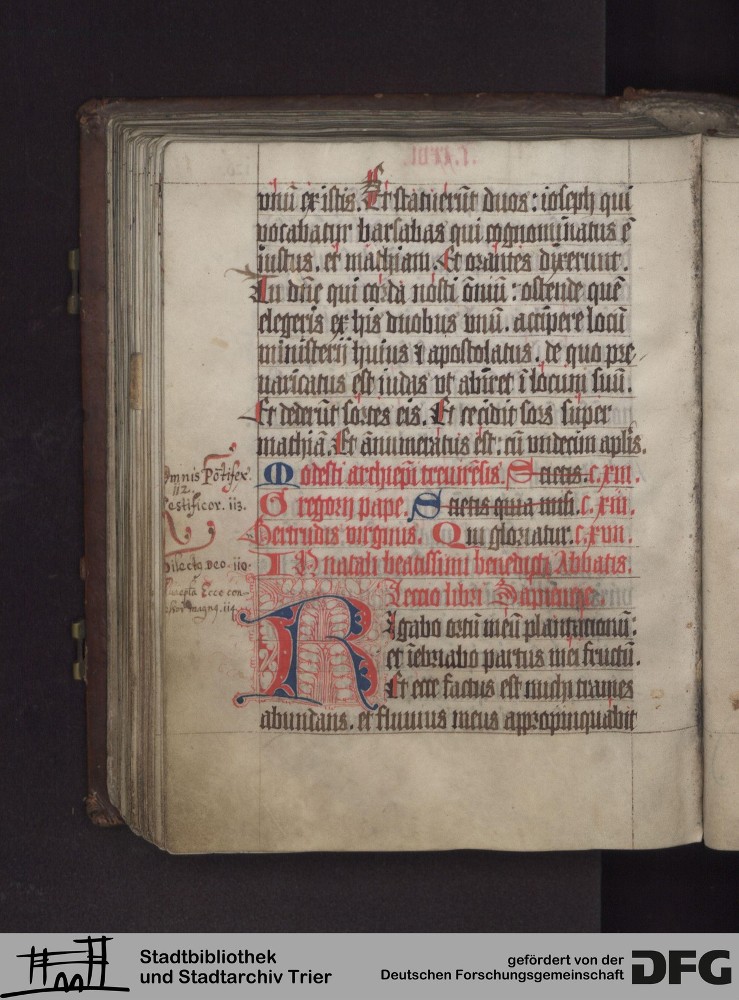 vnū ex istis. Et statuerūt duos: ioseph qui
vocabatur barsabas qui cognominatus ē
iustus. et mathiam. Et orantes dixerunt.
Tu dn̄e qui corda nosti om̄iū: ostende quē
elegeris ex his duobus vnū. accipere locū
ministerij huius ⁊ apostolatus. de quo pre
uaricatus est iudas vt abiret ī locum suū.
Et dederūt sortes eis. Et cecidit sors super
mathiā. Et ānumeratus est: cū vndecim apl̄is.
Modesti archiep̄i treuirēsis. c.xiii.
Gregorij pape. c.xiii.
Gertrudis virginis. Qui gloriatur. c.xvii.
IN natali beatissimi benedicti Abbatis.
Leccio libri Sapiencie
RIgabo ortū meū plantacionū:
et īebriabo partus mei fructū.
Et ecce factus est michi trames
abundans. et fluuius meus appropinquabit
omnis Pōtifex.
112.
Testificor. 113.
Dilectꝰ Deo. 119.
Ecce con
magnꝰ. 114
Stadtbibliothek
und Stadtarchiv Trier
gefördert von der
Deutschen Forschungsgemeinschaft
DFG